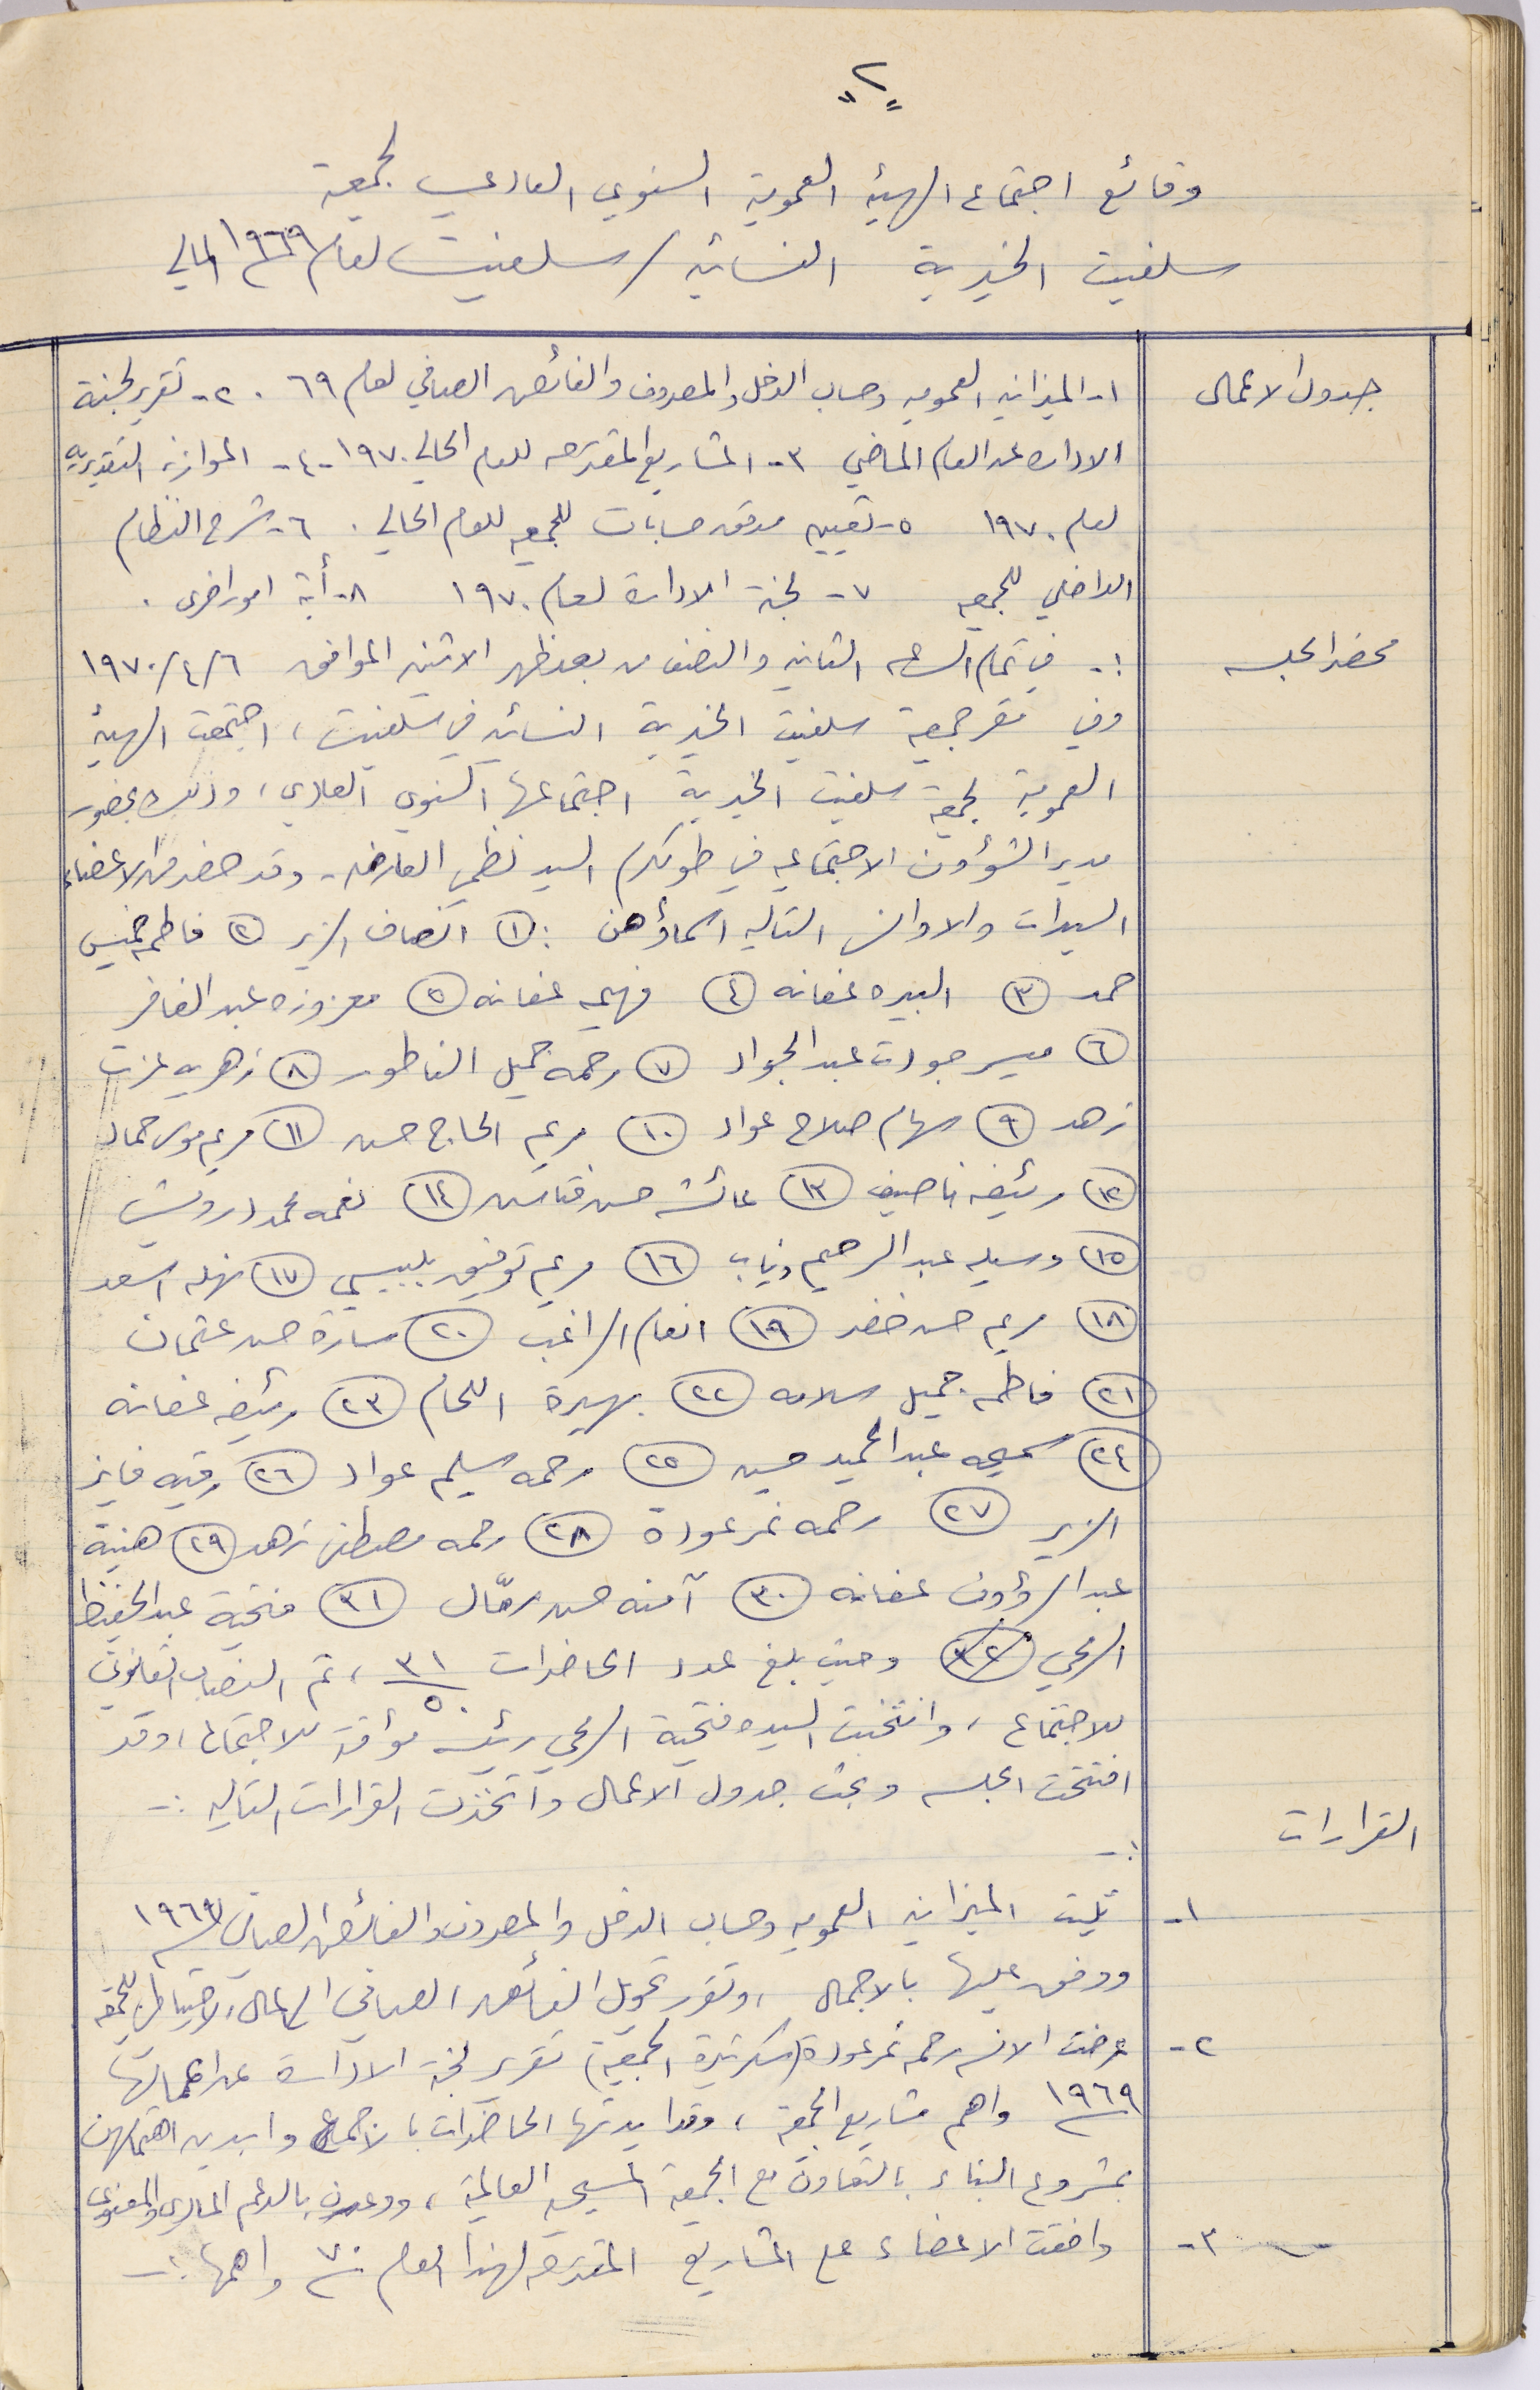 "٢"
وقائع اجتماع الهيئه العمومية السنوي العادي لجمعية
سلفيت الخيرية النسائيه / سلفيت لعام ١٩٦٩ المالي
جدول الاعمال
١- الميزانيه العموميه وحساب الدخل والمصروف والفائض الصافي لعام ٦٩ . ٢- تقرير لجنة
الاداره عن العام الماضي ٣- المشاريع المقترحه للعام الحالي ١٩٧٠ -٤- الموازنه التقديريه
لعام ١٩٧٠ ٥- تعيين مدقق حسابات للجمعيه للعام الحالي . ٦- شرح النظام
الداخلي للجمعيه ٧- لجنة الادارة لعام ١٩٧٠ ٨- أية امور اخرى .
محضر الجلسه
:- في تمام الساعه الثانيه والنصف من بعد ظهر الاثنين الموافق ١٩٧٠/٤/٦
وفي مقر جمعية سلفيت الخيرية النسائيه في سلفيت ، اجتمعت الهيئة
العمومية لجمعية سلفيت الخيرية اجتماعها السنوي العادي ، وذلك بحضور
مدير الشؤون الاجتماعيه في طولكرم السيد نظمي العارضه - وقد حضر من الاعضاء
السيدات والاوانس التاليه اسماؤهن : ١ انصاف الزير ٢ فاطمه خميس
حمد ٣ البيره عفانه ٤ فهيمه عفانه ٥ معزوزه عبد الغافر
٦ ميسر جودت عبد الجواد ٧ رحمه جميل الناطور ٨ زهريه عزت
زهد ٩ سهام صلاح عواد ١٠ مريم الحاج حسن ١١ مريم موسى حماد
١٢ رئيفه ناصيف ١٣ عائشه حسن فتاش ١٤ نعمه محمد درويش
١٥ وسيله عبد الرحيم دياب ١٦ مريم توفيق بلبيسي ١٧ نهله اسعد
١٨ مريم حسن خضر ١٩ انعام الراغب ٢٠ سارة حسن عثمان
٢١ فاطمه جميل سلامه ٢٢ بهيرة اللحام ٢٣ رئيفه عفانه
٢٤ سميحه عبد الحميد حسين ٢٥ رحمه سليم عواد ٢٦ رقيه فايز
الزير ٢٧ رحمه نمر عودة ٢٨ رحمه مصطفى زهد ٢٩ هنية
عبد الرؤوف عفانه ٣٠ آمنه حسن رمّال ٣١ فتحية عبد الحفيظ
الرمحي ٣٢ وحيث بلغ عدد الحاضرات ٣١/٥٠ ، تم النصاب القانوني
للاجتماع ، وانتخبت السيده فتحية الرمحي رئيسه مؤقتة للاجتماع ، وقد
افتتحت الجلسه وبحث جدول الاعمال واتخذت القرارات التاليه :-
القرارات
:-
١- تليت الميزانيه العموميه وحساب الدخل والمصروف والفائض الصافي لسنة ١٩٦٩
ووفق عليها بالاجماع ، وتقرر تحويل الفائض الصافي الى المال الاحتياطي للجمعية
٢- عرضت الانسه رحمه نمر عودة (سكرتيرة الجمعية) تقرير لجنة الادارة عن اعمالها
١٩٦٩ واهم مشاريع الجمعية ، وقد ايدتها الحاضرات بالاجماع وابدين اهتمامهن
بمشروع البناء بالتعاون مع الجمعية المسيحيه العالمية ، ووعدن بالدعم المادي والمعنوي
٣- وافقت الاعضاء على المشاريع المقترحه لهذا العام ٧٠ واهمها :-